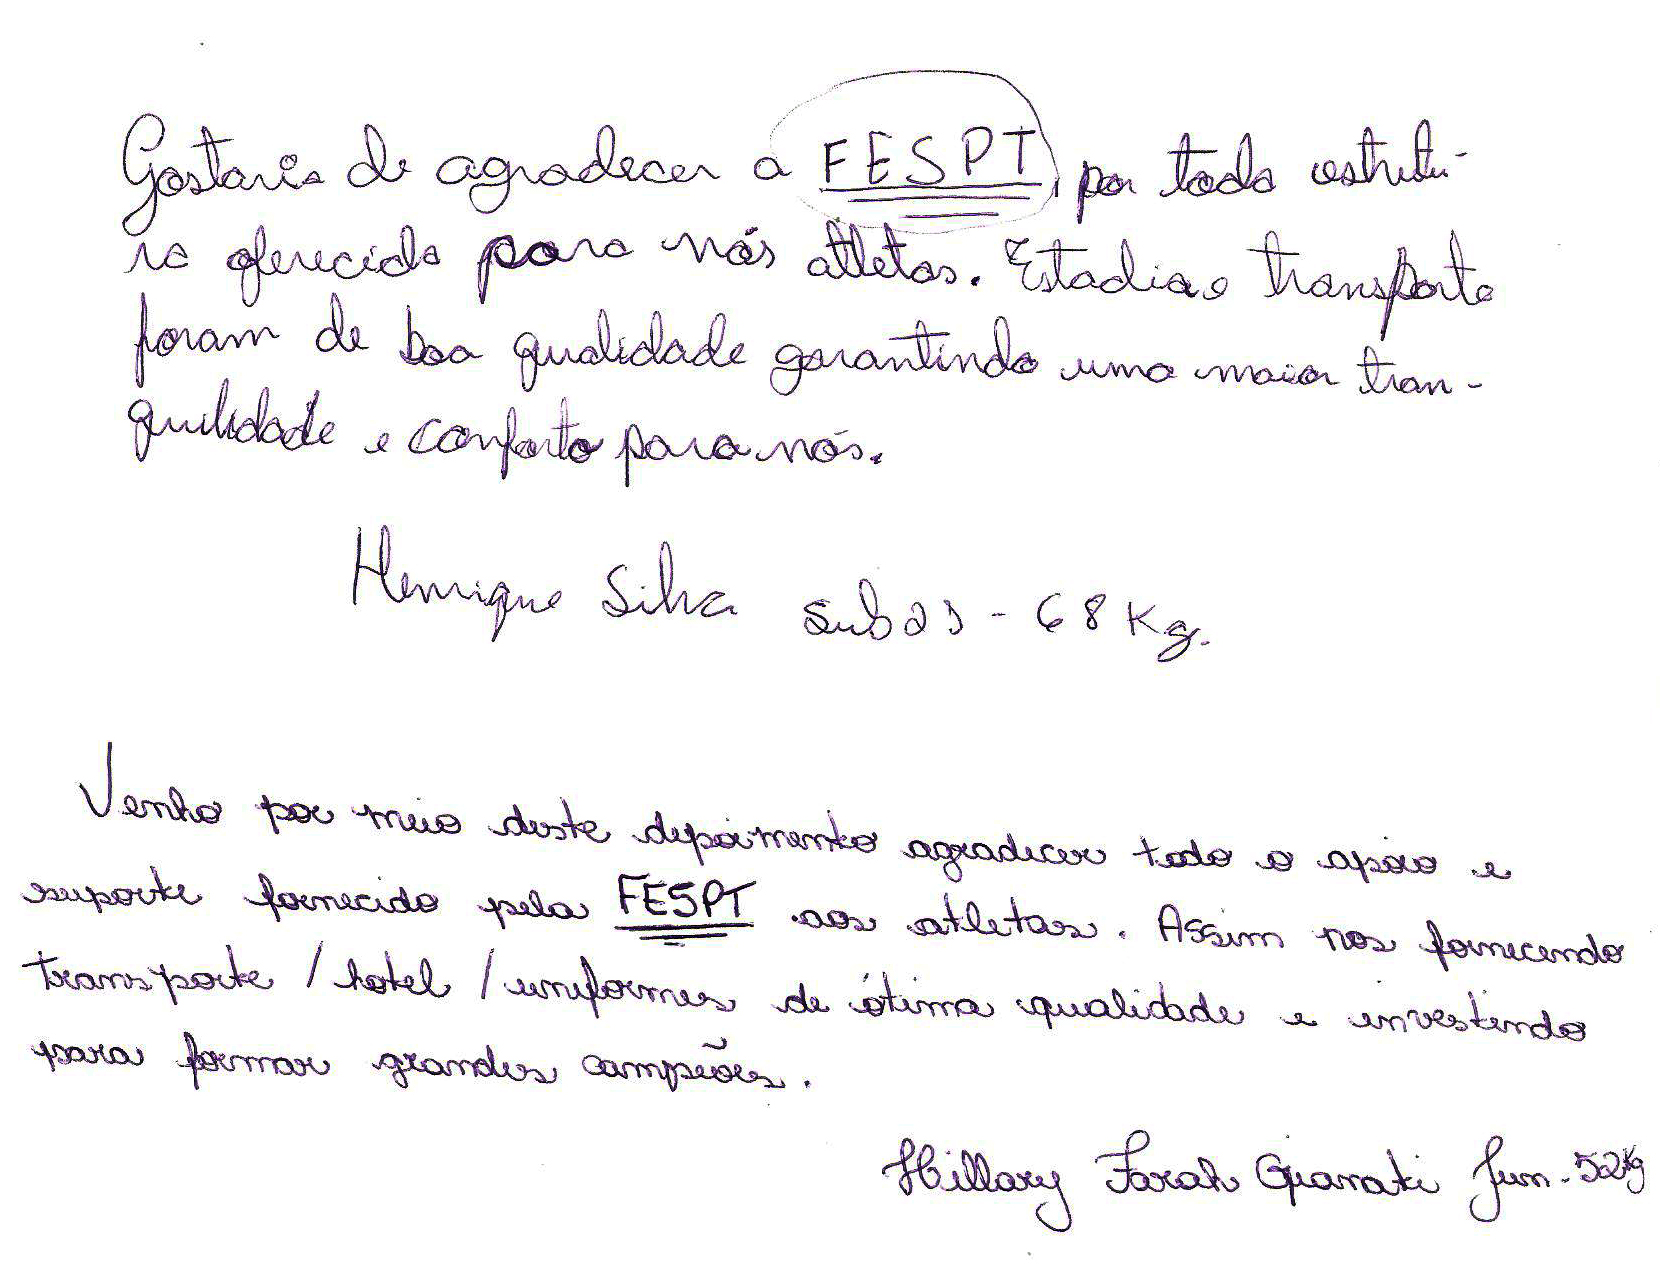 Gostaria de agradecer a FESPT, por toda estrutu-
ra oferecida para nós atletas. Estadia e transporte
foram de boa qualidade garantindo uma maior tran-
quilidade e conforto para nós.
Henrique Silva sub 21 - 68 Kg.
Venho por meio deste depoimento agradecer todo o apoio e
suporte fornecido pela FESPT aos atletas. Assim nos fornecendo
transporte / hotel / uniformes de ótima qualidade e investindo
para formar grandes campeões.
Hillary Farah Gianati Jun - 52Kg